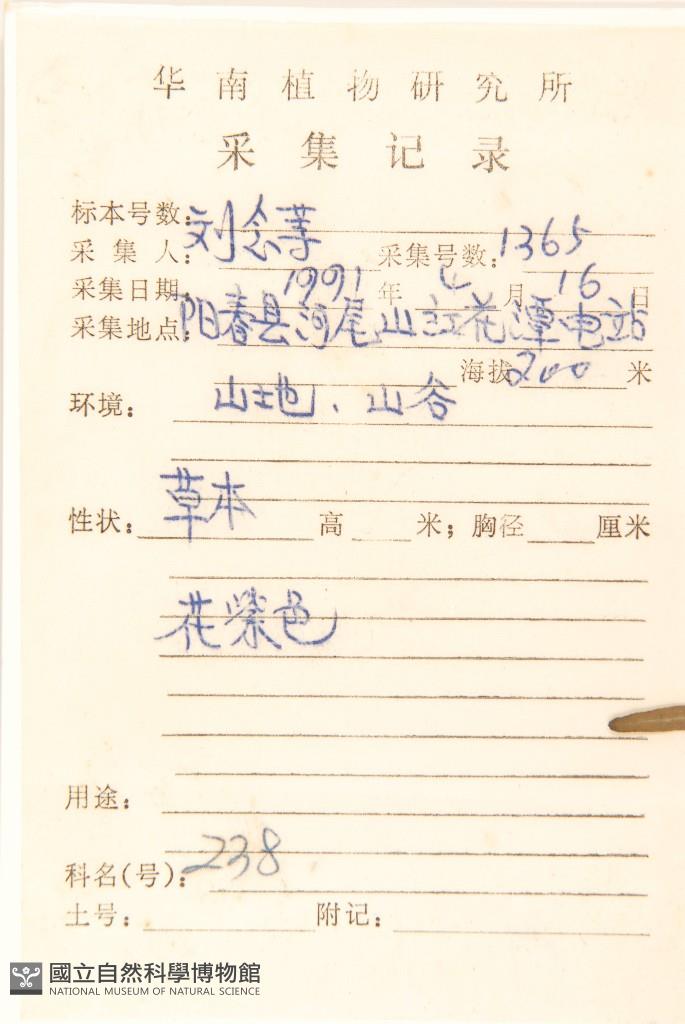 华南植物研究所
采集记录
标本号数:
采集人: 刘念 采集号数: 1365
采集日期: 1991年 4月 16日
采集地点: 阳春县河尾山红花潭电站
海拔 200 米
环境: 山地、山谷
性状: 草本 高 米; 胸径 厘米
花紫色
用途:
科名(号): 238
土号: 附记:
國立自然科學博物館
NATIONAL MUSEUM OF NATURAL SCIENCE